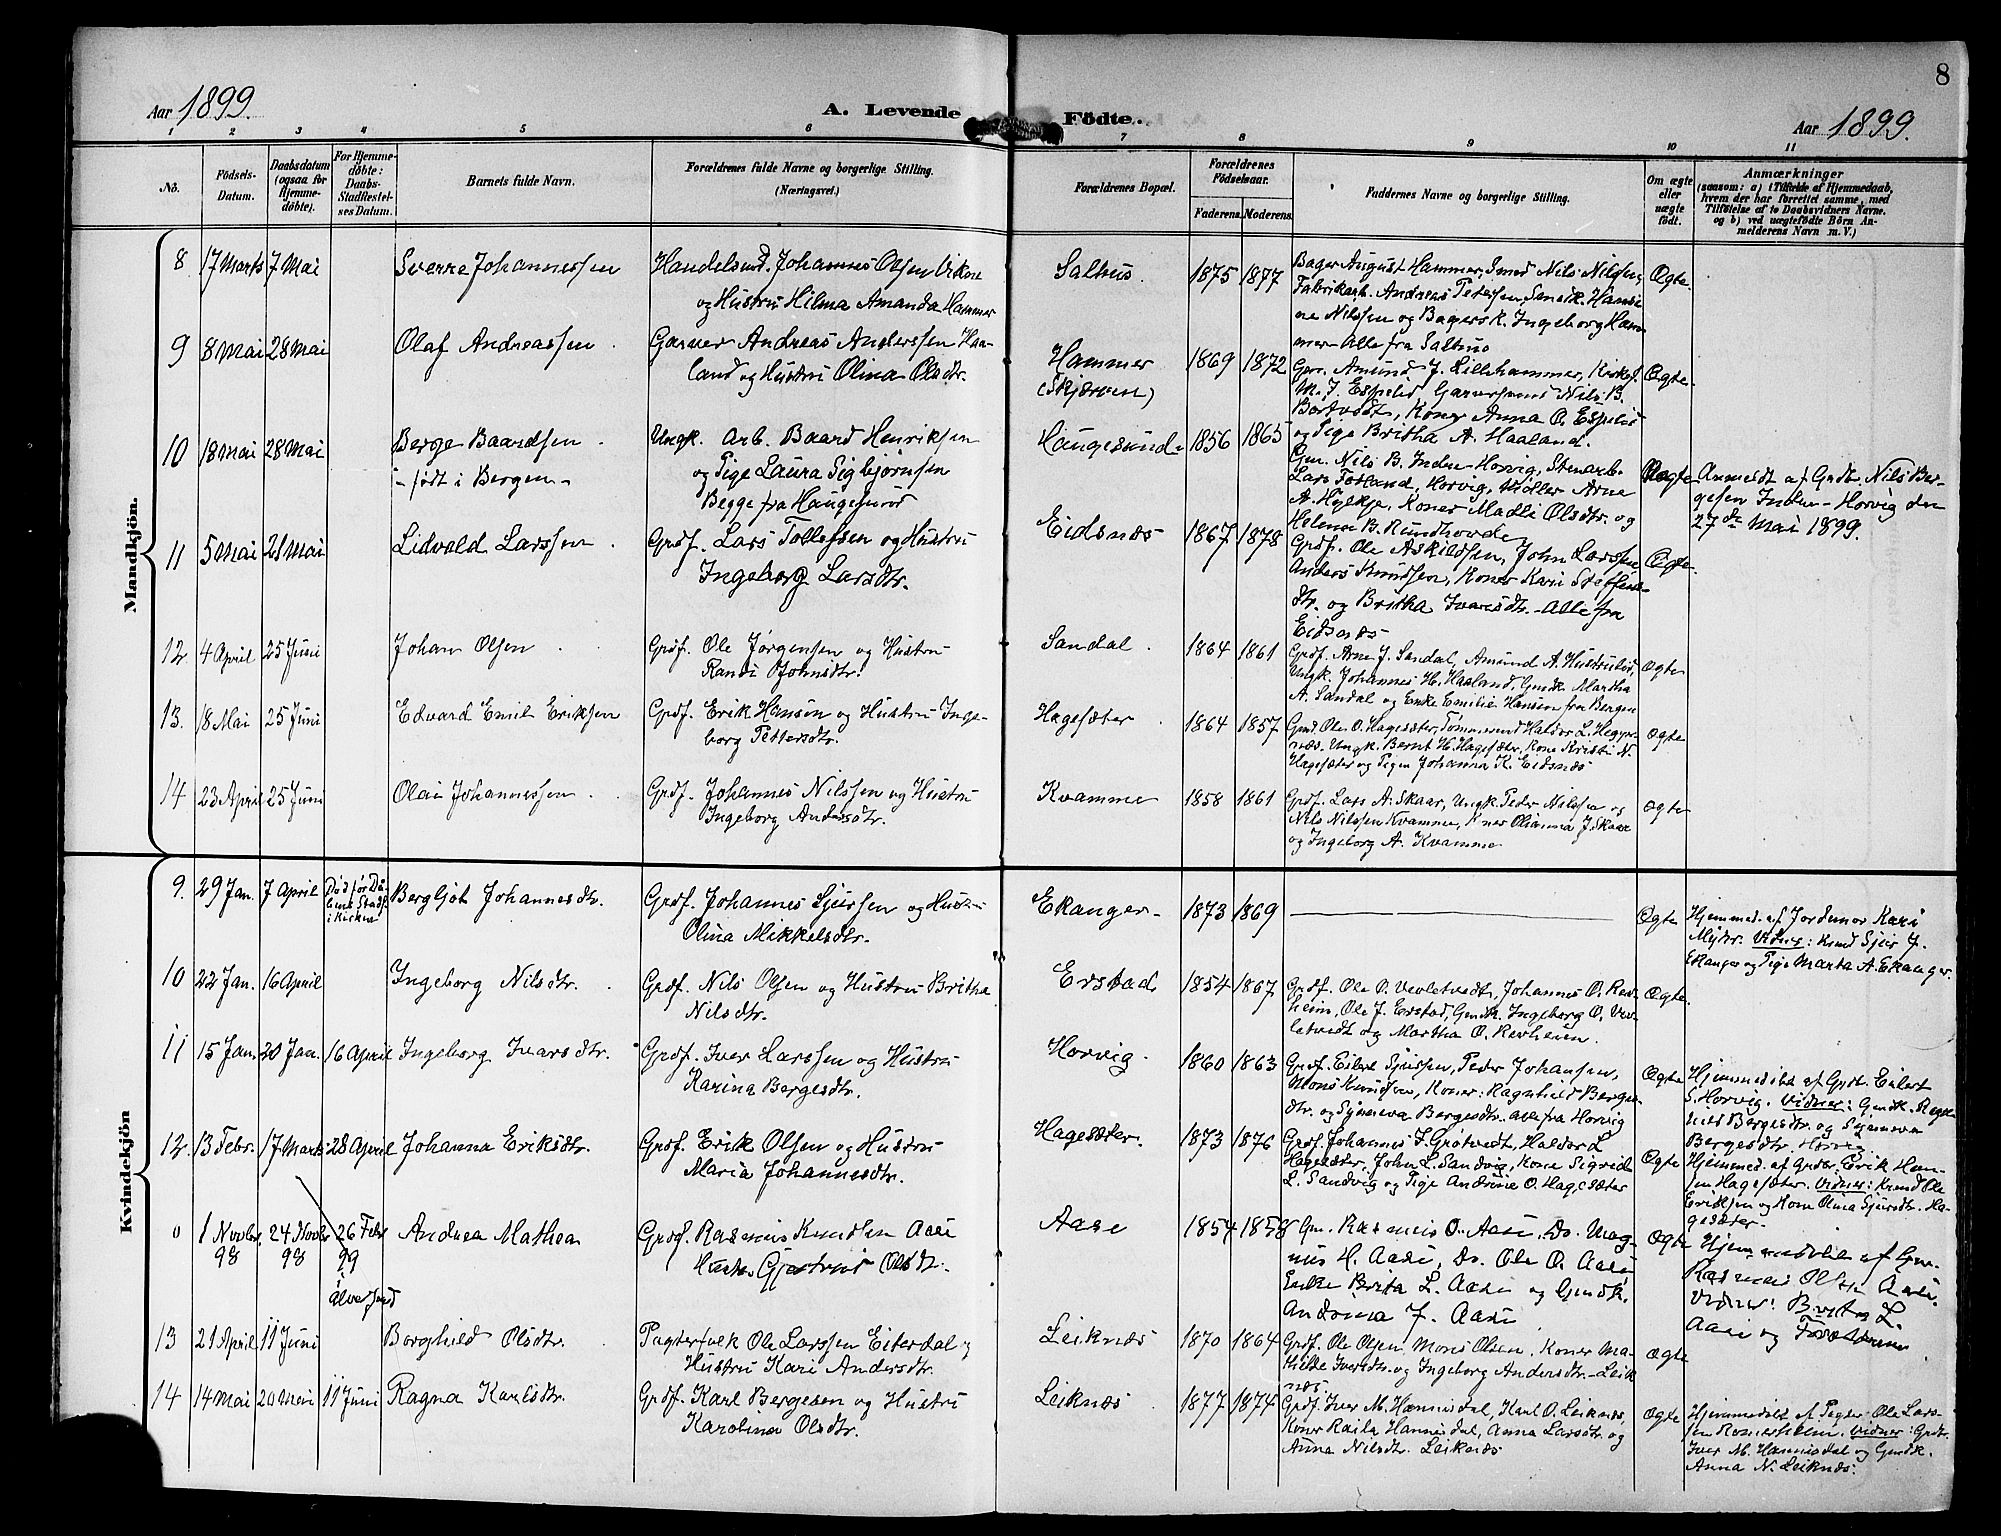 8
Aar 1899.
A. Levende Födte.
Aar 1899.
1 2 3 4 5 6 7 8 9 10 11
No.
Födsels-Datum.
Daabsdatum (ogsaa for Hjemmedöbte).
For Hjemmedöbte: Daabs-Stadfæstelses Datum.
Barnets fulde Navn.
Forældrenes fulde Navne og borgerlige Stilling. (Næringsvei.)
Forældrenes Bopæl.
Forældrenes Födselsaar.
Faderens. Moderens.
Faddernes Navne og borgerlige Stilling.
Om ægte eller uægte födt.
Anmærkninger
(saasom: a) i Tilfælde af Hjemmedaab,
hvem der har forrettet samme, med
Tilföielse af to Daabsvidners Navne.
og b) ved uægtefödte Börn An-
melderens Navn m. V.)
Mandkjön.
8 17 Marts 7 Mai Sverre Johannessen Handelsmd. Johannes Olsen Vikne
og Hustru Hilma Amanda Hammer
Salhus. 1875 1877
Bager August Hammer, Smed Nils Nilsen,
Fabrikarb. Andreas Petersen, Smedk. Hansi
ne Nilssen og Bagersk. Ingeborg Ham
mer – Alle fra Salhus
Ægte.
9 8 Mai 28 Mai Olaf Andreassen Garver Andreas Anderssen Haa-
land og Hustru Olina Olsdtr.
Hammer
(Skjærven)
1869 1872
Gm. Amund J. Lillehammer, Kirkes.
M. J. Espelid Garversvend Nils B.
Botvedt, Koner Anna O. Espelid
og Pige Britha A. Haaland.
Ægte.
10 18 Mai 28 Mai Berge Baardsen
– født i Bergen –
Ungk. Arb. Baard Henriksen
og Pige Laura Sigbjørnsen
Begge fra Haugesund
Haugesund 1856 1865
Gm. Nils B. Indre-Horvig, Stenarb.
Lars Fotland, Horvig, Møller Arne
A. Hylkje, Koner Madli Olsdtr. og
Helena B. Rundhovde
Uægte
Anmeldt af Grdbr. Nils Ber-
gesen Indre-Horvig den
27de Mai 1899.
11 5 Mai 21 Mai Lidvald Larssen Grdf. Lars Tollefsen og Hustru
Ingeborg Larsdtr.
Eidsnæs 1867 1878
Grdf. Ole Askildsen, John Larssen
Anders Knudsen, Koner Kari Steffens-
dtr. og Britha Iversdtr. – Alle fra
Eidsnæs
Ægte.
12 4 April 25 Juni Johan Olsen Grdf. Ole Jørgensen og Hustru
Randi Johnsdtr.
Sandal. 1864 1861
Grdf. Arne J. Sandal, Amund A. Hustruliid,
Ungk. Johannes H. Haaland, Gmdk. Martha
A. Sandal og Enke Emilie Hansen fra Bergen
Ægte
13. 18 Mai 25 Juni Edvard Emil Eriksen Grdf. Erik Hansen og Hustru Inge-
borg Pettersdtr.
Hagesæter 1864 1857
Gmd. Ole O. Hagesæter, Tømmermd Haldor L. Heggre-
næs. Ungk. Bernt H. Hagesæter, Kone Kristi N.
Hagesæter og Pigen Johanna K. Eidsnæs
Ægte
14 23 April 25 Juni Olai Johannessen Grdf. Johannes Nilssen og Hustru
Ingeborg Andersdtr.
Kvamme 1858 1861
Grdf. Lars A. Skaar, Ungk. Peder Nilssen og
Nils Nilssen Kvamme, Koner Olianna J. Skaar
og Ingeborg A. Kvamme
Ægte
Kvindekjön
9. 29 Jan. 7 April Død før Då-
bens Stadf.
i Kirken
Bergljot Johannesdtr. Grdf. Johannes Sjursen og Hustru
Olina Mikkelsdtr.
Ekanger 1873 1869
Ægte
Hjemmed. af Jordemor Kari
Myhr. Vidner: Knud Sjur J.
Ekanger og Pige Marta A. Ekanger.
10 22 Jan. 16 April Ingeborg Nilsdtr. Grdf. Nils Olsen og Hustru Britha
Nilsdtr.
Erstad 1854 1867
Grdf. Ole O. Vevletvedt, Johannes O. Rev-
heim, Ole J. Erstad, Gmdk. Ingeborg O. Vev-
letvedt og Martha O. Revheim.
Ægte
11 15 Jan. 20 Jan. 16 April Ingeborg Ivarsdtr. Grdf. Iver Larssen og Hustru
Karina Bergesdtr.
Horvig. 1860 1863
Grdf. Eilert Sjursen, Peder Johansen,
Mons Knudsen, Koner: Ragnhild Berges
dtr. og Synneva Bergesdtr. alle fra Horvig
Ægte
Hjemmedøbt af Grdf. Eilert
S. Horvig. Vidner: Gmdk. Ragn
hild Bergesdtr. og Synneva
Bergesdtr. Horvig.
12 13 Febr. 17 Marts 28 April Johanna Eriksdtr. Grdf. Erik Olsen og Hustru
Maria Johannesdtr.
Hagesæter. 1873 1876
Grdf. Johannes J. Grøtvedt, Haldor L
Hagesæter, John L. Sandvig, Kone Sigrid
L. Sandvig og Pige Andrine O. Hagesæter
Ægte
Hjemmed. af Grdbr. Erik Han-
sen Hagesæter. Vidner: Knud Ole
Eriksen og Kone Olina Sjursdtr. Ha-
gesæter.
0 1 Novbr. 98 24 Novbr 98 26 Febr 99
i
Alversund
Andrea Mathea Grdf. Rasmus Knudsen Aase
Hust. Gjertrud Olsdt.
Aase 1854 1858
Gm. Rasmus O. Aase, Do. Mag-
nus H. Aase, Do. Ole O. Aase
Enke Brita L. Aase og Gmdk.
Andrina J. Aase
Ægte
Hjemmedøbt af Gm.
Rasmus Olsen Aase.
Vidner: Brita L.
Aase og Forældrene
13 21 April 11 Juni Borghild Olsdtr. Pagterfolk Ole Larssen Eiterdal og
Hustru Kari Andersdtr.
Leiknæs 1870 1864
Grdf. Ole Olsen, Mons Olsen, Koner Ma-
thilde Iversdtr. og Ingeborg Andersdtr. – Leik
næs.
Ægte
14 14 Mai 20 Mai 11 Juni Ragna Karlsdtr. Grdf. Karl Bergesen og Hustru
Karolina Olsdtr.
Leiknæs 1877 1874
Grdf. Iver M. Hannisdal, Karl O. Leiknæs,
Koner Raila Hannisdal, Anna Larsdtr. og
Anna Nilsdtr. Leiknæs
Ægte
Hjemmedøbt af Pagter Ole Lars-
sen Romarheim. Vidner: Grdbr.
Iver M. Hannisdal og Gmdk.
Anna N. Leiknæs.